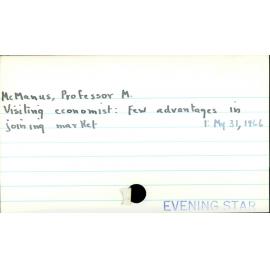 McManus, Professor M.
Visiting economist: Few advantages in
joining market 1: My 31, 1966
EVENING STAR